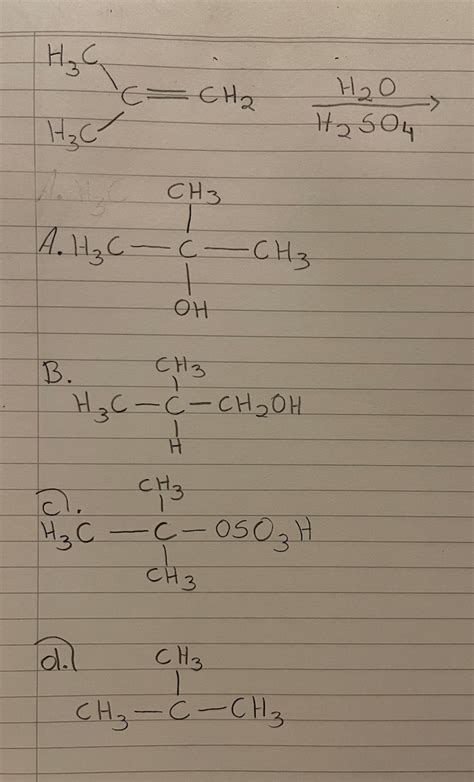 H3C
C=CH2 H2O
H3C H2SO4
A. H3C
CH3
A. H3C — C — CH3
OH
B. CH3
H3C — C — CH2OH
H
CH3
c).
H3C — C — OSO3H
CH3
d.) CH3
CH3 — C — CH3